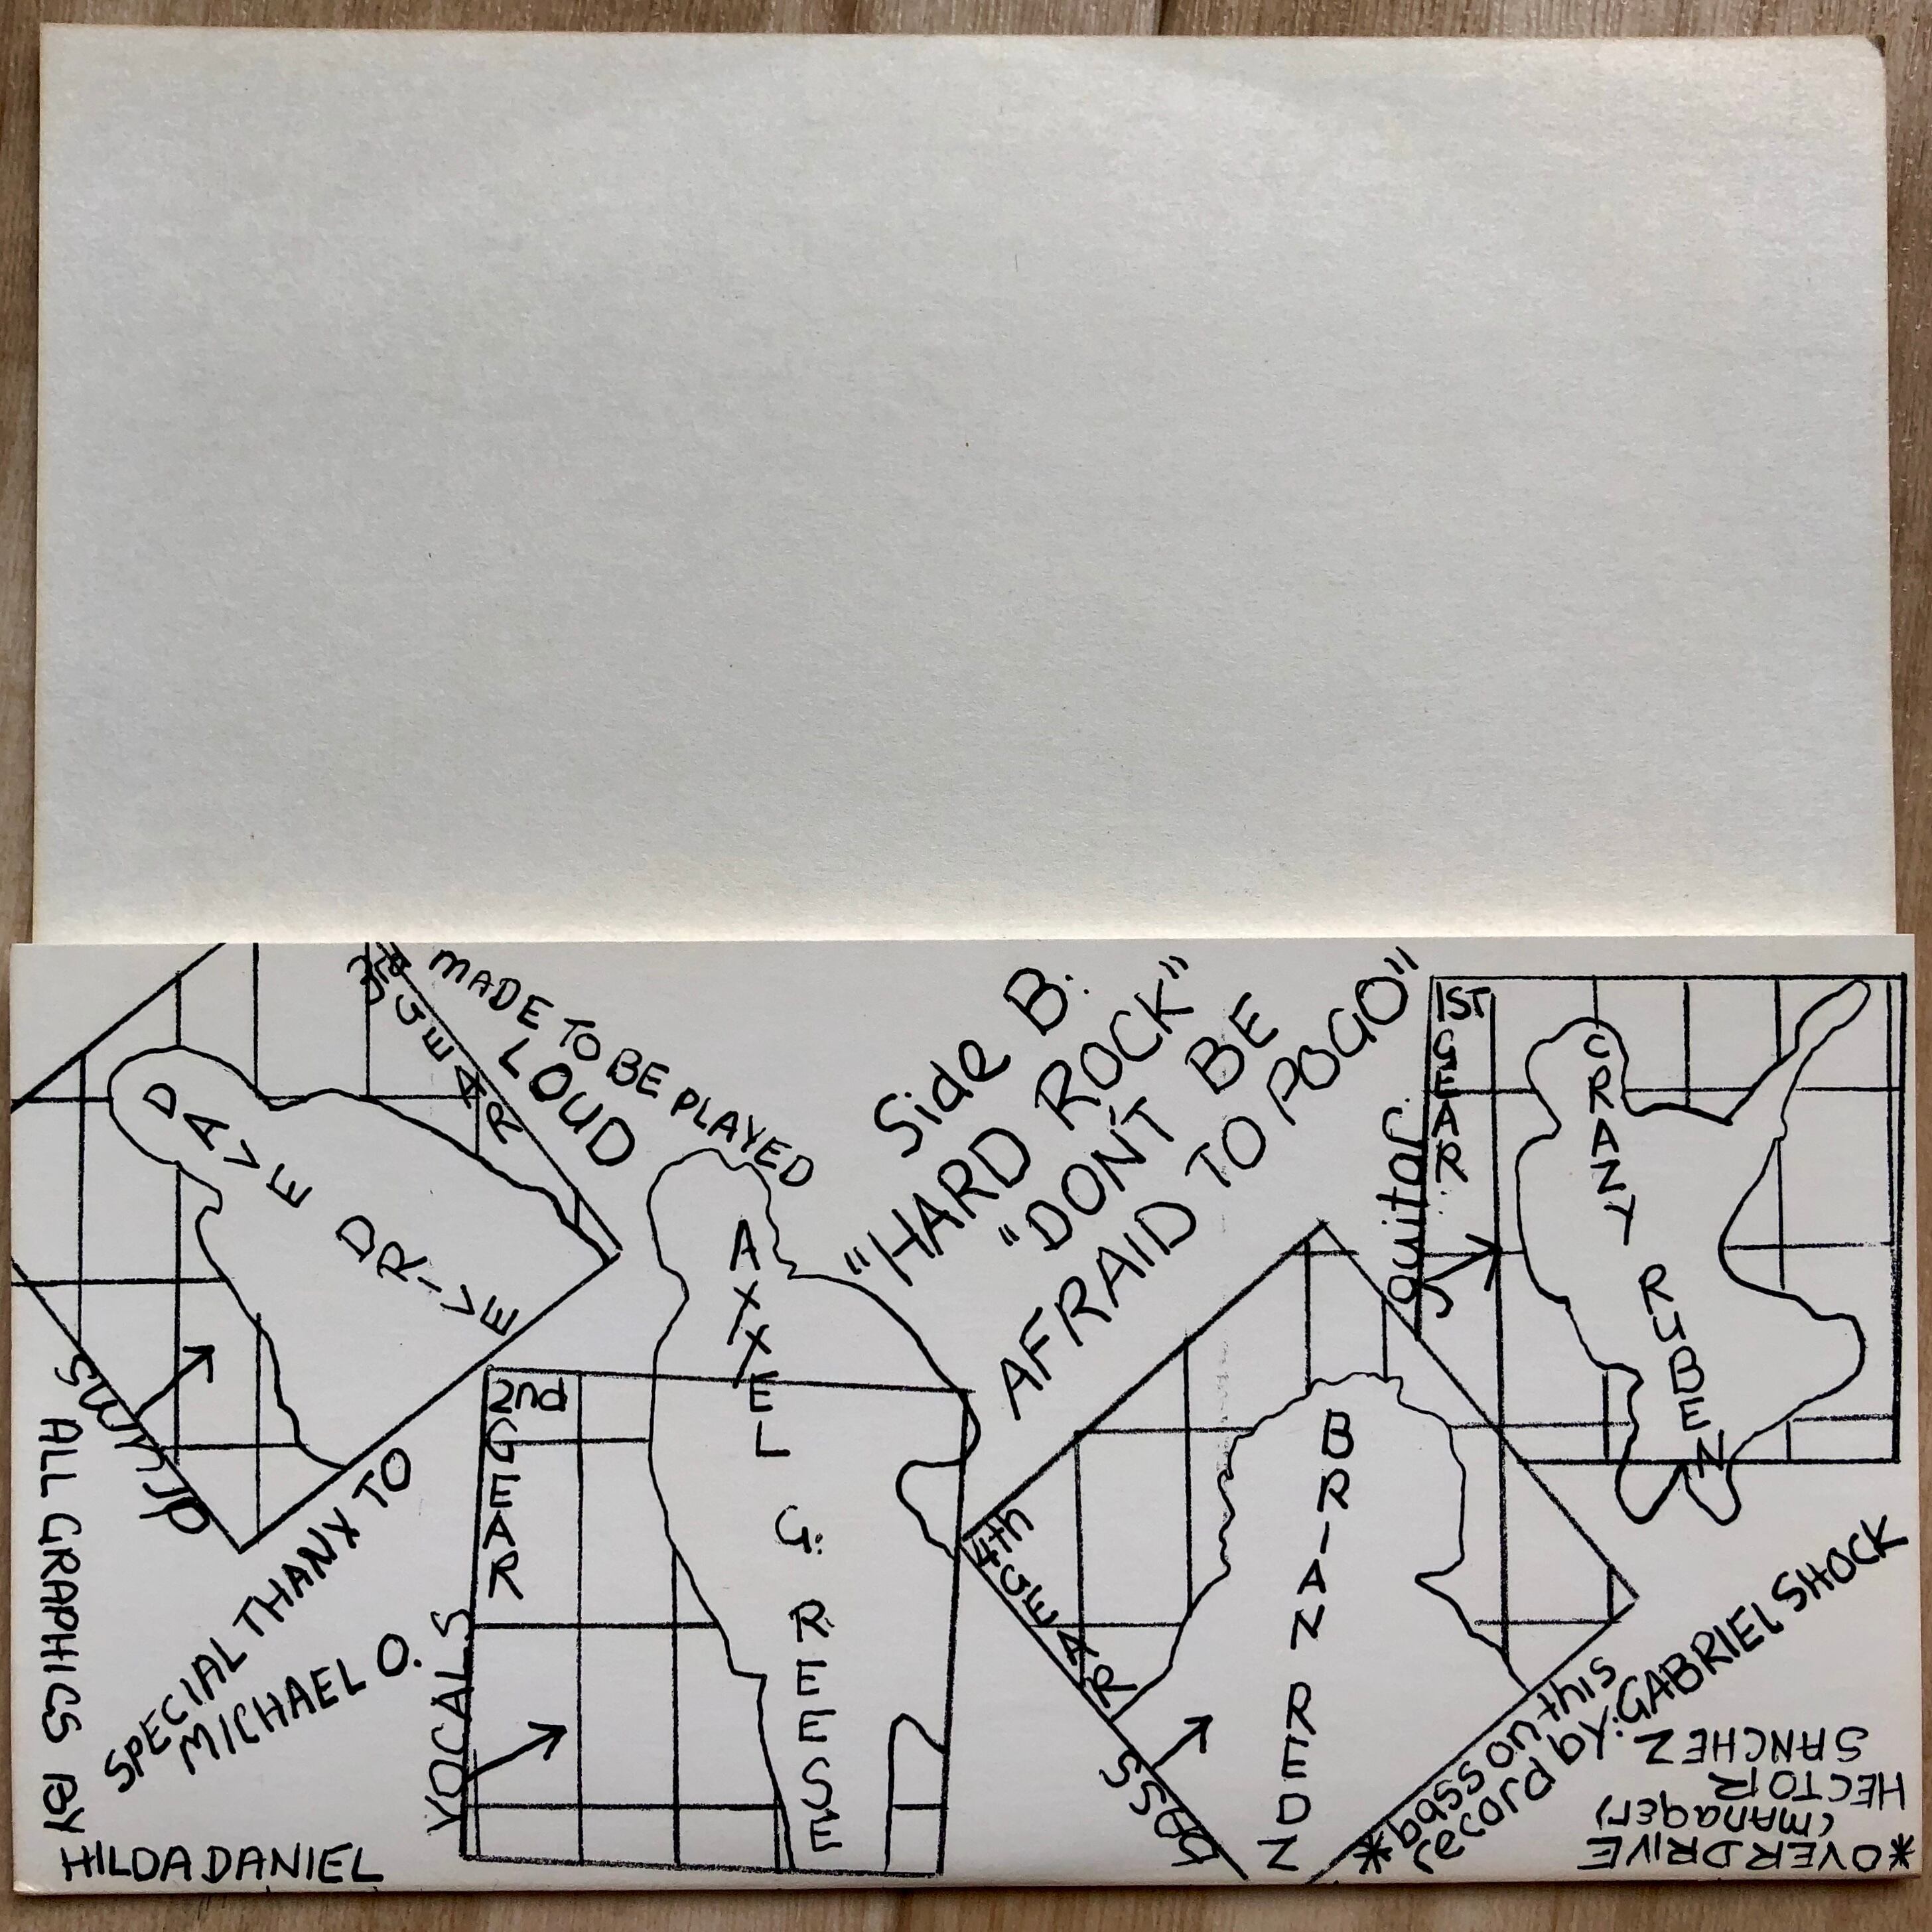 3rd
GEAR
MADE TO BE PLAYED
LOUD
DAVE DRIVE
drums
Side B:
"HARD ROCK"
"DON'T BE
AFRAID TO POGO"
1ST
GEAR
guitar
CRAZY RUBEN
2nd
GEAR
VOCALS
AXXEL G. REESE
4th
GEAR
bass
BRIAN REDZ
*bass on this
record by: GABRIEL SHOCK
*OVERDRIVE
(manager)
HECTOR
SANCHEZ
SPECIAL THANX TO
MICHAEL O.
ALL GRAPHICS BY
HILDA DANIEL